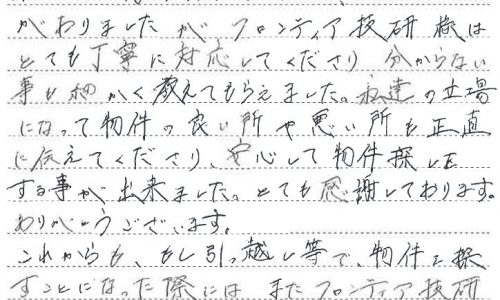 がわりましたが、フロンティア技研様は
とても丁寧に対応してくださり 分からない
事も細かく教えてもらえました。私達の立場
になって物件の良い所や悪い所も正直
に伝えてくださり、安心して物件探しを
する事が出来ました。とても感謝しております。
ありがとうございます。
これからも、もし引っ越し等で、物件を探
すことになった際には またフロンティア技研